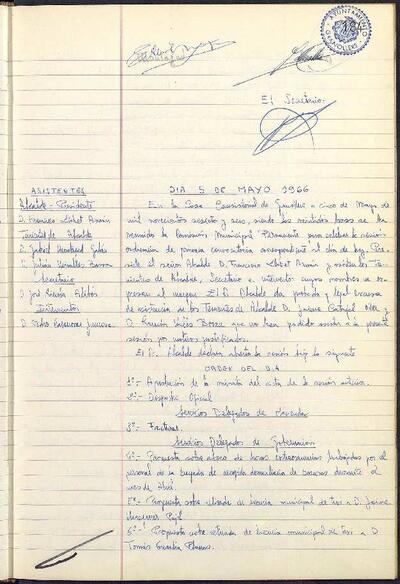 AYUNTAMIENTO
GRANOLLERS
El Secretario.
DIA 5 DE MAYO 1966
ASISTENTES
Alcalde - Presidente
D. Francisco Llobet
Tenientes de Alcalde
D. Gabriel
D. Julián
Secretario
D. José
Interventor
D. Pedro
En la Casa Consistorial de Granollers a cinco de Mayo de
mil novecientos sesenta y seis, siendo las veintidos horas se ha
reunido la Comisión Municipal Permanente para celebrar la sesión
ordinaria de primera convocatoria correspondiente al día de hoy. Pre-
side el señor Alcalde D. Francisco Llobet y asisten los Te-
nientes de Alcalde, Secretario e Interventor cuyos nombres se ex-
presan al margen. El Sr. Alcalde da por
de los Tenientes de Alcalde D. Jaime y
D. que no han podido asistir a la presente
sesión por motivos justificados.
El Sr. Alcalde declara abierta la sesión bajo la siguiente
ORDEN DEL DIA
1º.- Aprobación de la minuta del acta de la sesión anterior.
2º.- Despacho Oficial
Servicios Delegados de Hacienda
3º.- Facturas.
Servicios Delegados de Gobernación
4º.- Propuesta sobre abono de horas extraordinarias trabajadas por el
personal de la brigada de recogida domiciliaria de basuras durante el
mes de Abril
5º.- Propuesta sobre de licencia municipal de taxi a D. Jaime
6º.- Propuesta sobre de licencia municipal de taxi a D.
Tomás